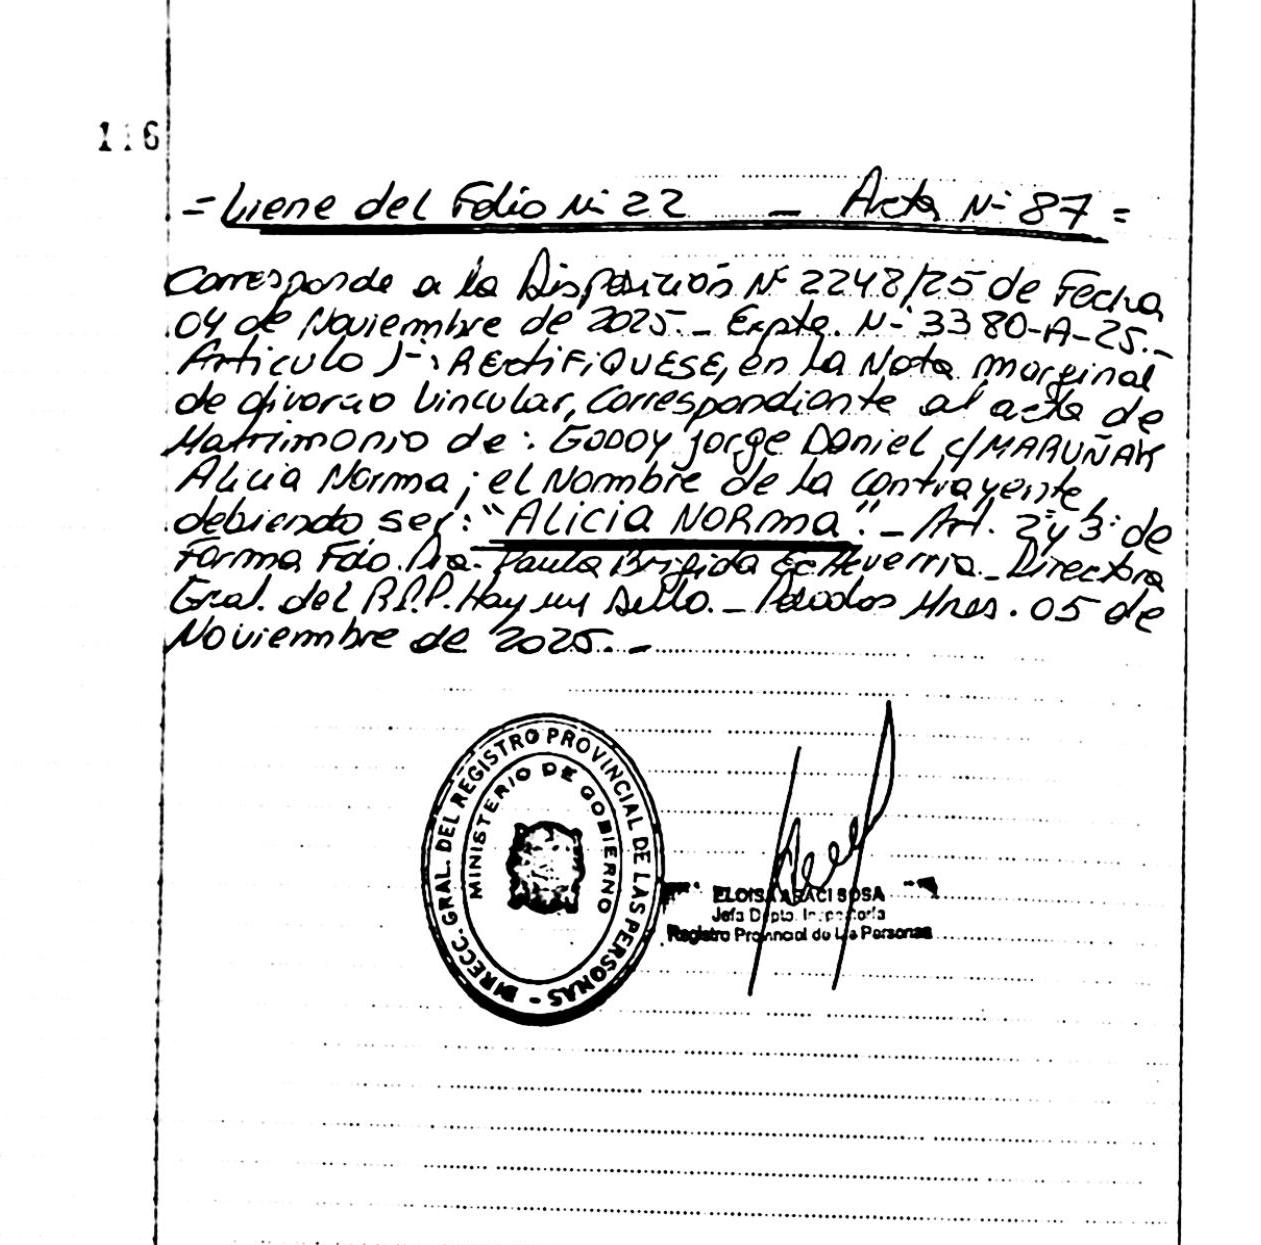 116
= Viene del Folio Nº 22 _ Acta Nº 87 =
Corresponde a la Disposición Nº 2248/25 de Fecha
04 de Noviembre de 2025._ Expte. Nº 3380-A-25._
Articulo 1º: RECtiFiQUESE, en la Nota marginal
de divorcio vincular, Correspondiente al acta de
Matrimonio de: GODOY Jorge Daniel c/MARUÑAK
Alicia Norma; el Nombre de la contrayente,
debiendo ser: "ALiCiA NORma"._ Art. 2º y 3º de
Forma Fdo. Dra. Paula Brigida Echeverria._ Directora
Gral. del R.P.P. Hay un Sello._ Posadas Mnes. 05 de
Noviembre de 2025._
DIRECC. GRAL. DEL REGISTRO PROVINCIAL DE LAS PERSONAS -
MINISTERIO DE GOBIERNO
ELOISA ARACI SOSA
Jefa Dpto. Inspectoría
Registro Provincial de las Personas